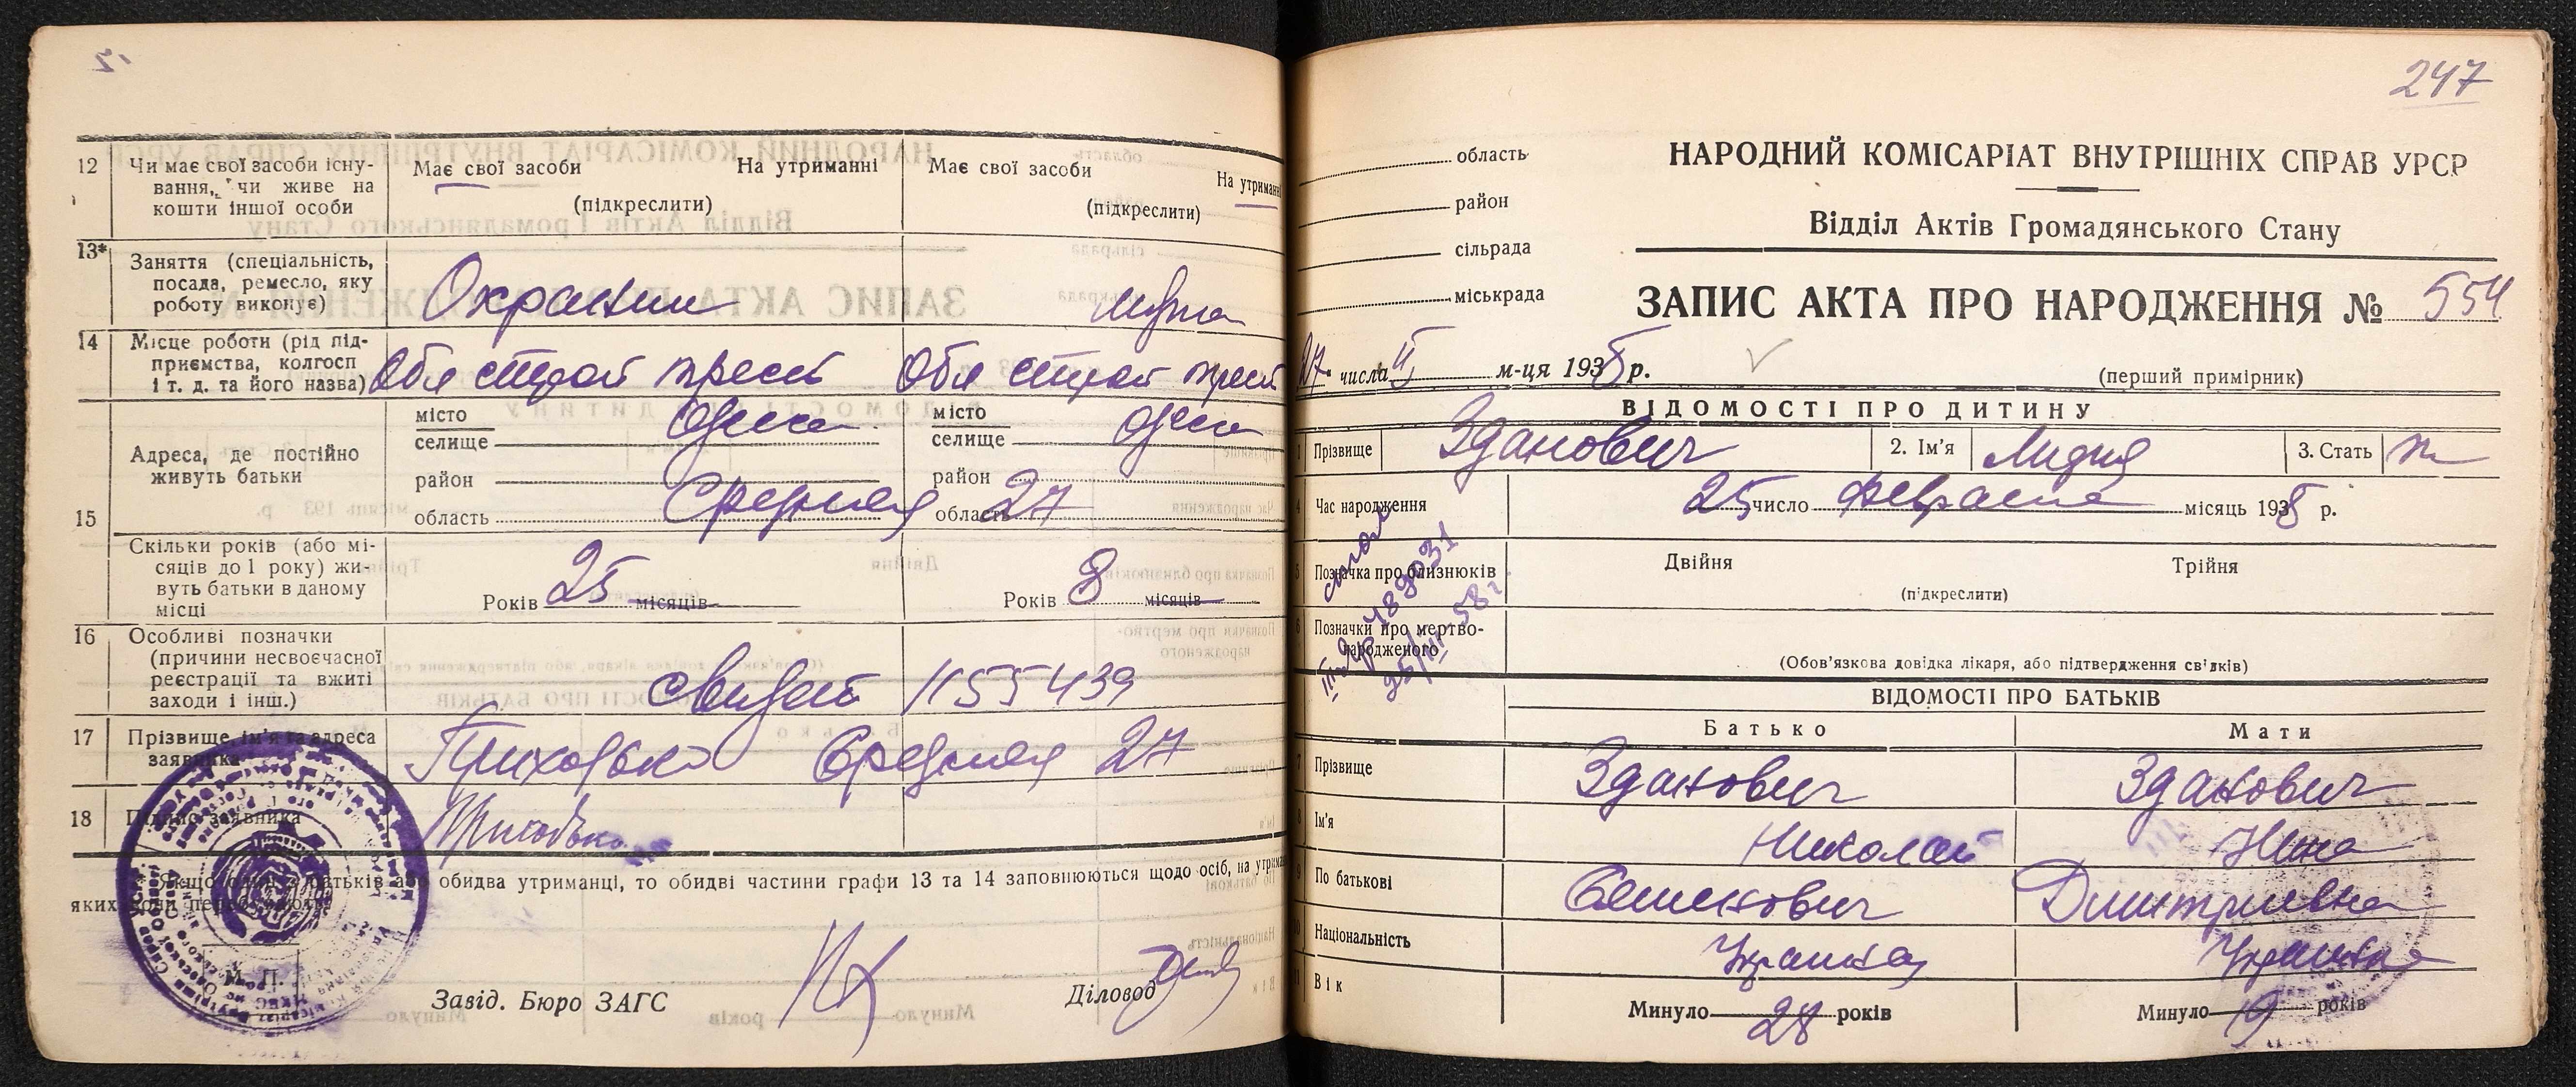 12 Чи має свої засоби існу-
вання, чи живе на
кошти іншої особи
Має свої засоби На утриманні
(підкреслити)
Має свої засоби На утриманні
(підкреслити)
13* Заняття (спеціальність,
посада, ремесло, яку
роботу виконує)
мужа
14 Місце роботи (рід під-
приємства, колгосп
і т. д. та його назва)
Обл строй трест Обл строй трест
15 Адреса, де постійно
живуть батьки
місто Одесса
селище
район
область Средняя
місто Одесса
селище
район
область 27
Скільки років (або мі-
сяців до 1 року) жи-
вуть батьки в даному
місці
Років 25 місяців
Років 8 місяців
16 Особливі позначки
(причини несвоєчасної
реєстрації та вжиті
заходи і інш.)
Свидет 1155439
17 Прізвище, ім'я та адреса
заявника
Приходько Средняя 27
18 Підпис заявника
Приходько
Якщо один з батьків або обидва утриманці, то обидві частини графи 13 та 14 заповнюються щодо осіб, на утриманні
яких вони перебувають.
М. П.
Завід. Бюро ЗАГС
Діловод
247
область
район
сільрада
міськрада
НАРОДНИЙ КОМІСАРІАТ ВНУТРІШНІХ СПРАВ УРСР
Відділ Актів Громадянського Стану
ЗАПИС АКТА ПРО НАРОДЖЕННЯ № 554
27 числа II м-ця 1938 р.
(перший примірник)
ВІДОМОСТІ ПРО ДИТИНУ
1 Прізвище Зданович 2. Ім'я Лидия 3. Стать ж
4 Час народження 25 число Февраля місяць 1938 р.
5 Позначка про близнюків Двійня Трійня
(підкреслити)
6 Позначки про мертво-
народженого
(Обов'язкова довідка лікаря, або підтвердження свідків)
489031
25/III-58г.
ВІДОМОСТІ ПРО БАТЬКІВ
Батько Мати
7 Прізвище Зданович Зданович
8 Ім'я Николай Нина
9 По батькові Семенович Дмитриевна
10 Національність Украинка
11 Вік
Минуло 28 років
Минуло 19 років